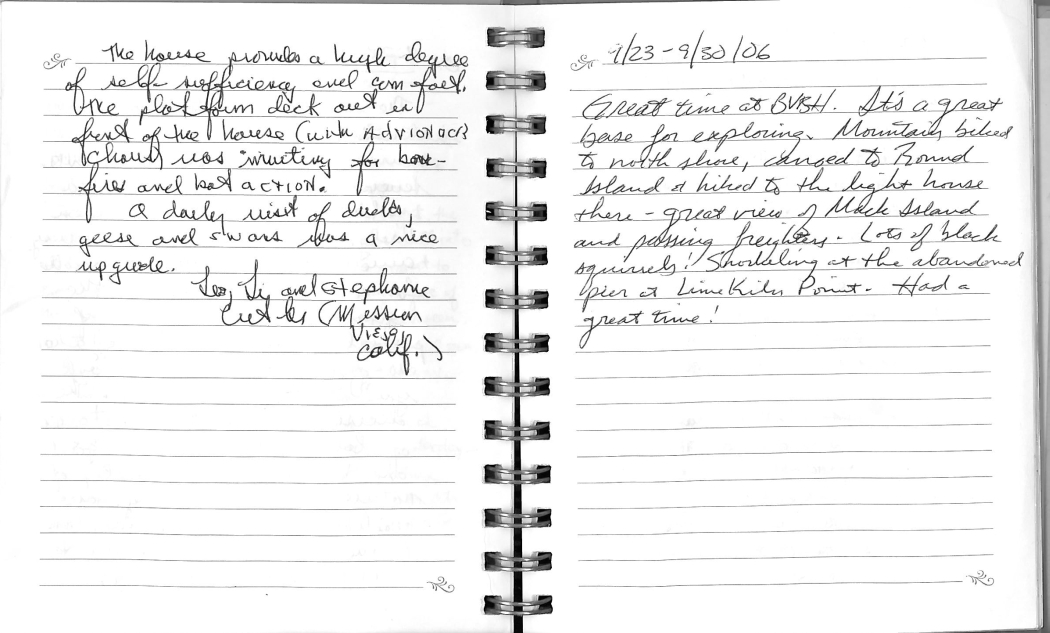 The house provides a high degree
of self-sufficiency and comfort.
The platform deck out in
front of the house (with ADIRONDACK
Chairs) was inviting for bon-
fires and bat ACTION.
A daily visit of ducks,
geese and swans was a nice
upgrade.
and Stephanie
(Mission
VIEJO,
Calif.)
9/23 - 9/30/06
Great time at BVBH. It's a great
base for exploring. Mountain biked
to north shore, canoed to Round
Island & hiked to the light house
there - great view of Mack Island
and passing freighters. Lots of black
squirrels! Snorkeling at the abandoned
pier at Lime Kiln Point. Had a
great time!